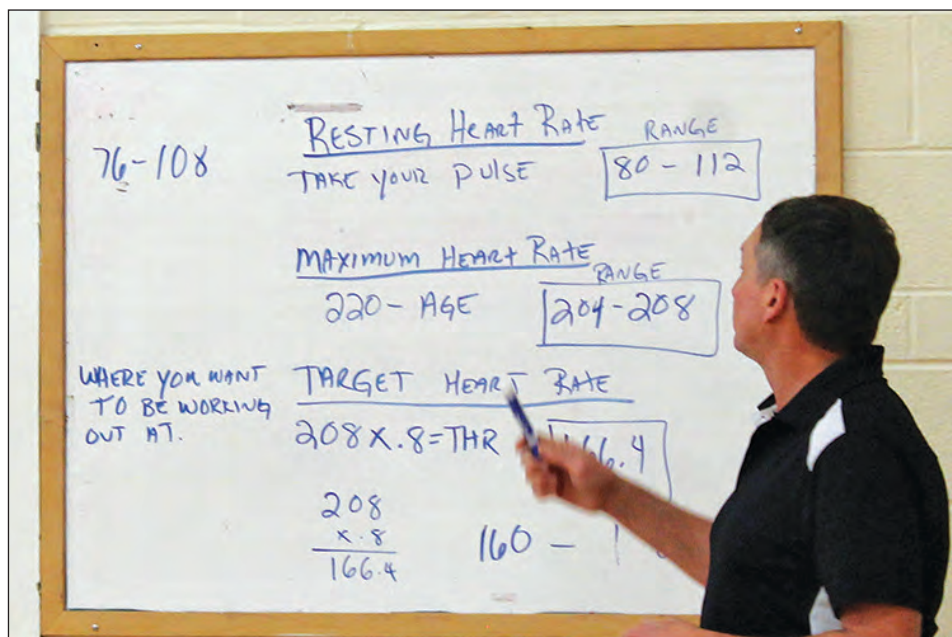 RESTING HEART RATE
RANGE
76-108
TAKE YOUR PULSE
80 - 112
MAXIMUM HEART RATE
RANGE
220 - AGE
204 - 208
WHERE YOU WANT
TO BE WORKING
OUT AT.
TARGET HEART RATE
208 X .8 = THR
166.4
208
x .8
166.4
160 -